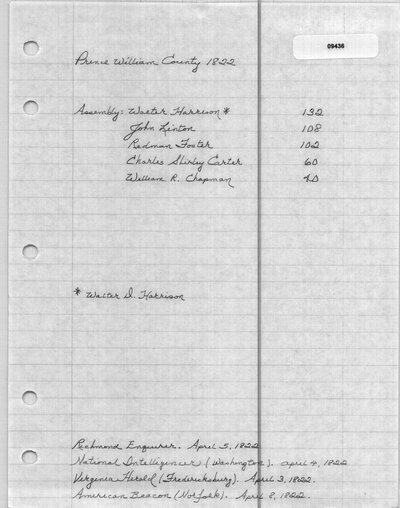 09436
Prince William County 1822
Assembly: Walter Harrison * 132
John Linton 108
Redman Foster 102
Charles Shirley Carter 60
William R. Chapman 40
* Walter D. Harrison
Richmond Enquirer. April 5, 1822
National Intelligencer (Washington). April 4, 1822
Virginia Herald (Fredericksburg). April 3, 1822.
American Beacon (Norfolk). April 8, 1822.